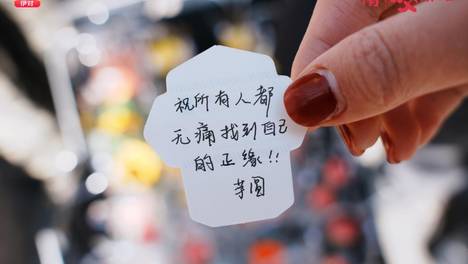 伊对
祝所有人都
无痛找到自己
的正缘!!
芋圆